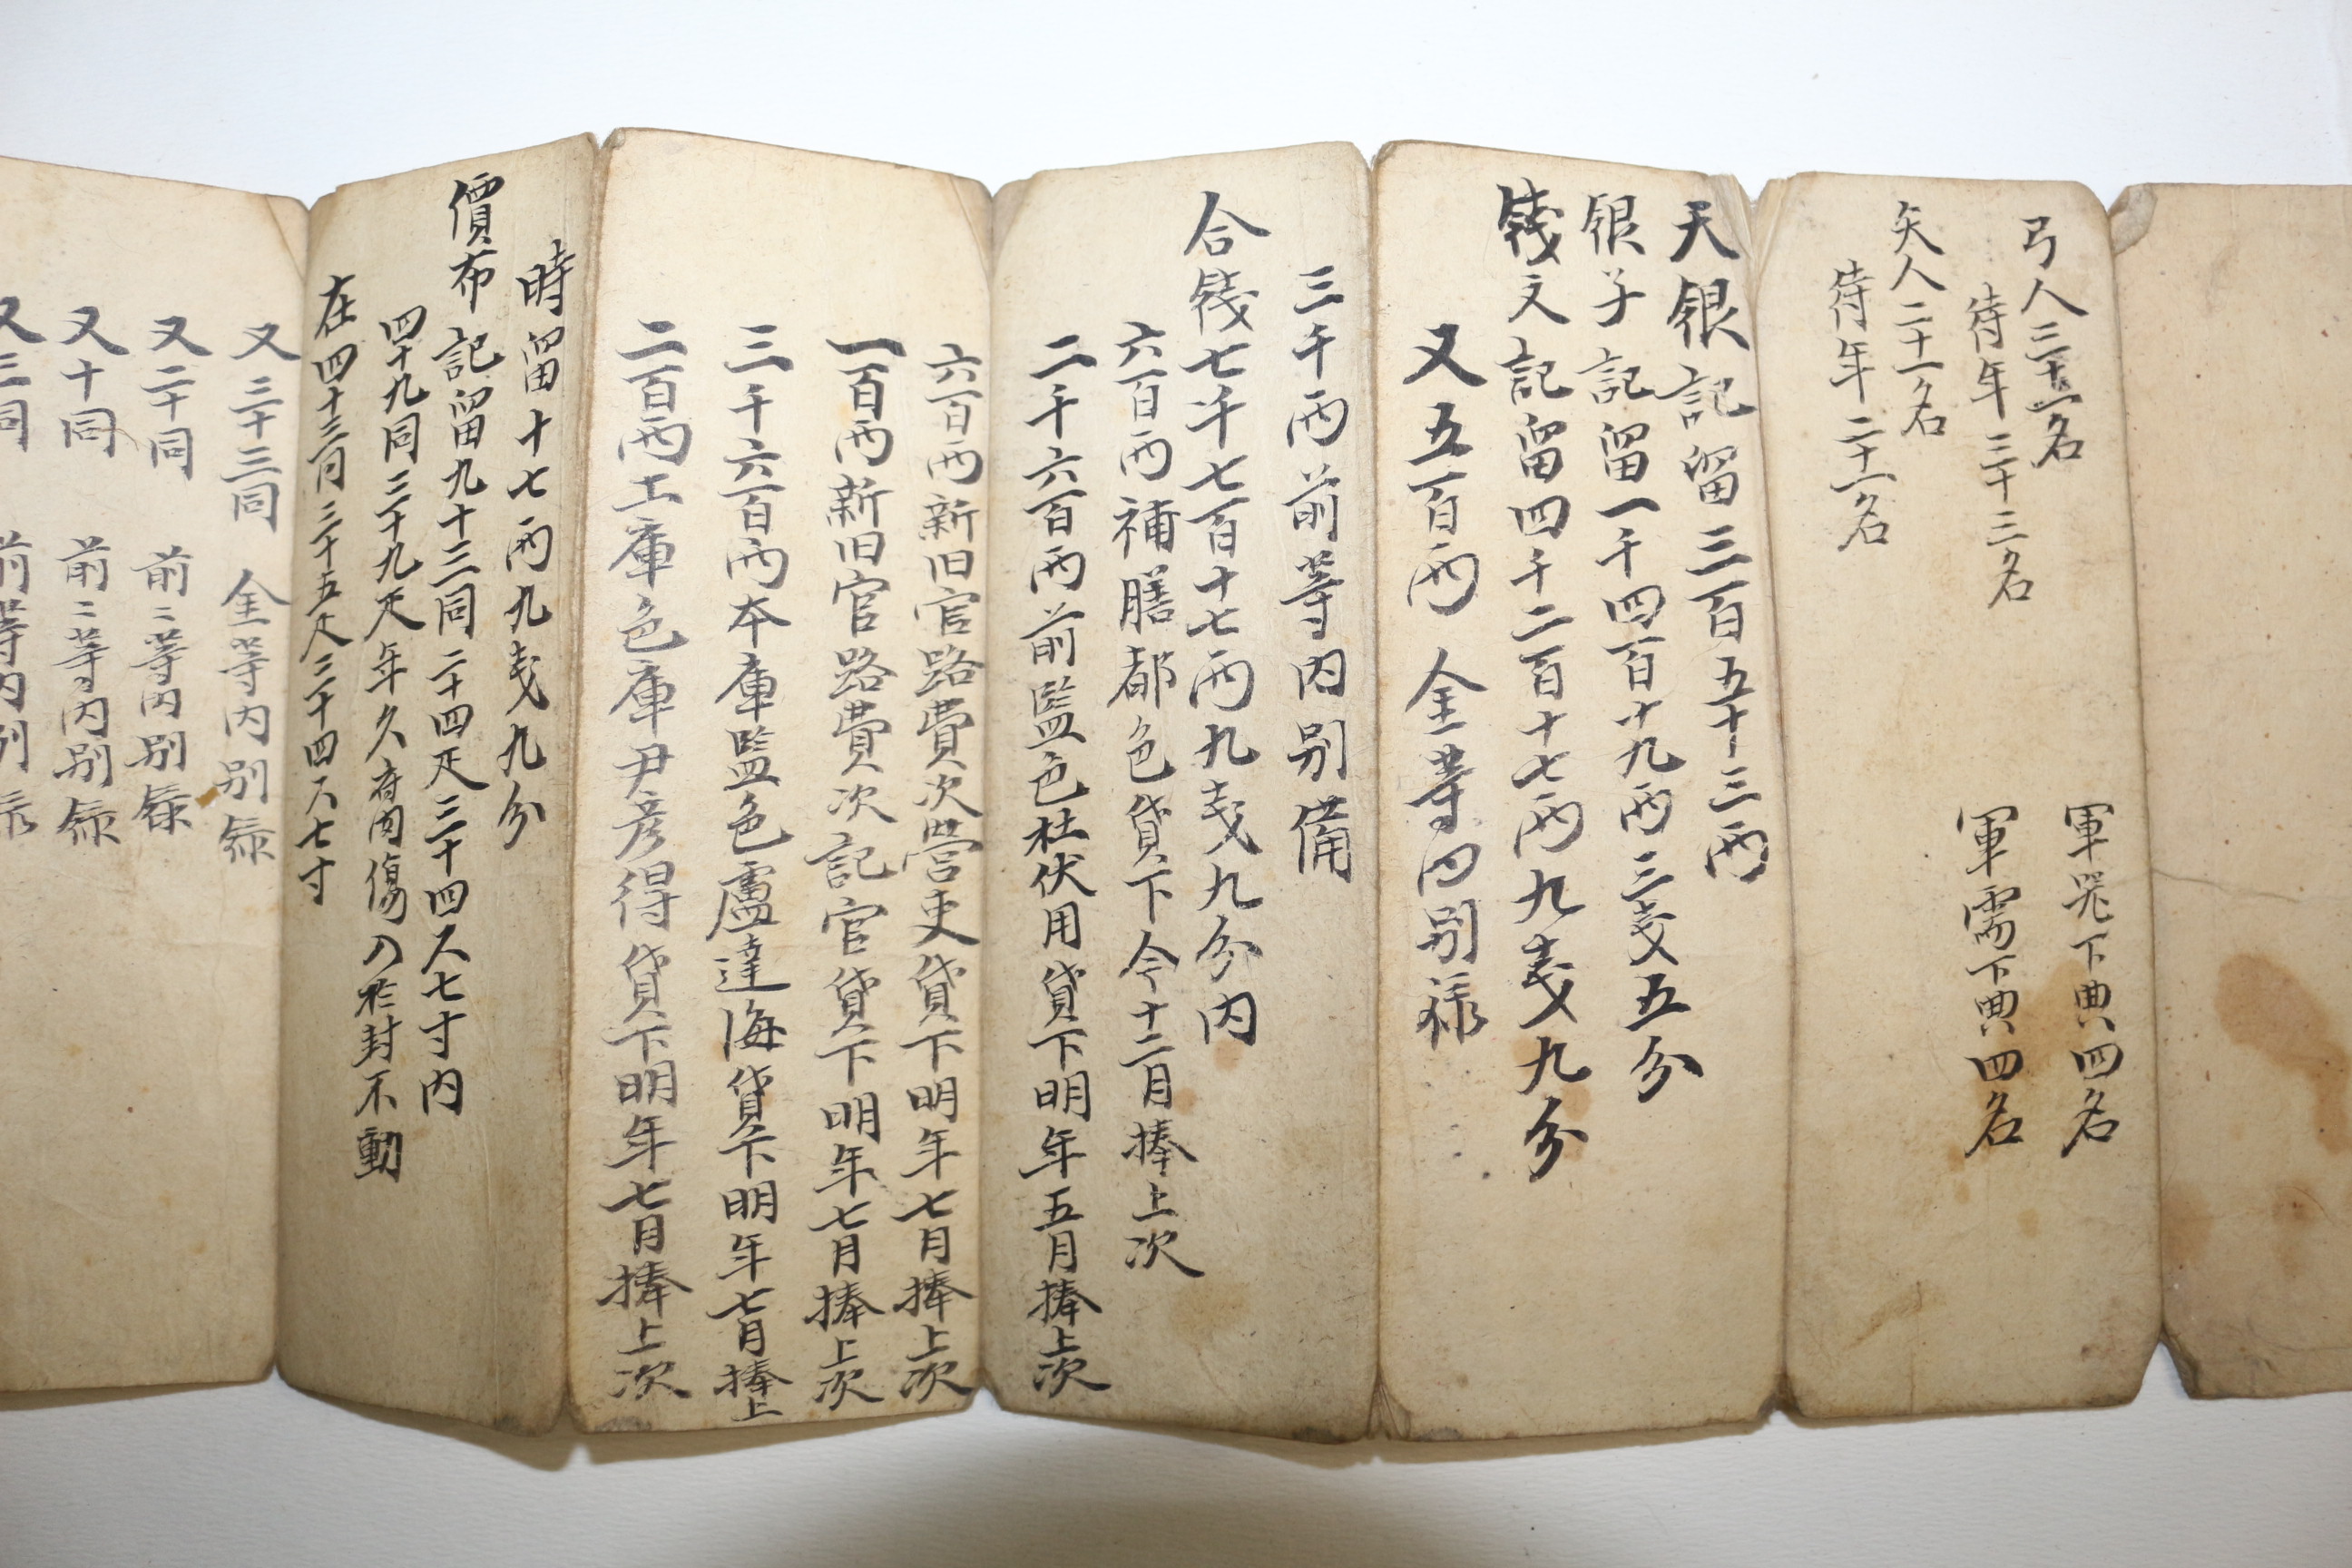 弓人三十三名
待年三十三名
軍器下典四名
矢人二十一名
待年二十一名
軍需下典四名
天銀記留三百五十三兩
銀子記留一千四百十九兩三戔五分
錢文記留四千二百十七兩九戔九分
又五百兩 仝等內別䘵
三千兩前等內別備
合錢七千七百十七兩九戔九分內
六百兩補膳都色貸下今十二月捧上次
二千六百兩前監色杜伏用貸下明年五月捧上次
六百兩新旧官路費次營吏貸下明年七月捧上次
一百兩新旧官路費次記官貸下明年七月捧上次
三千六百兩本庫監色盧達海貸下明年七月捧上
二百兩工庫色庫尹彥得貸下明年七月捧上次
時留十七兩九戔九分
價布記留九十三同二十四疋三十四尺七寸內
四十九同三十九疋年久腐傷入於封不動
在四十三同三十五疋三十四尺七寸
又三十三同 仝等內別錄
又二十同 前二等內別錄
又十同 前二等內別錄
又三同 前等內別錄